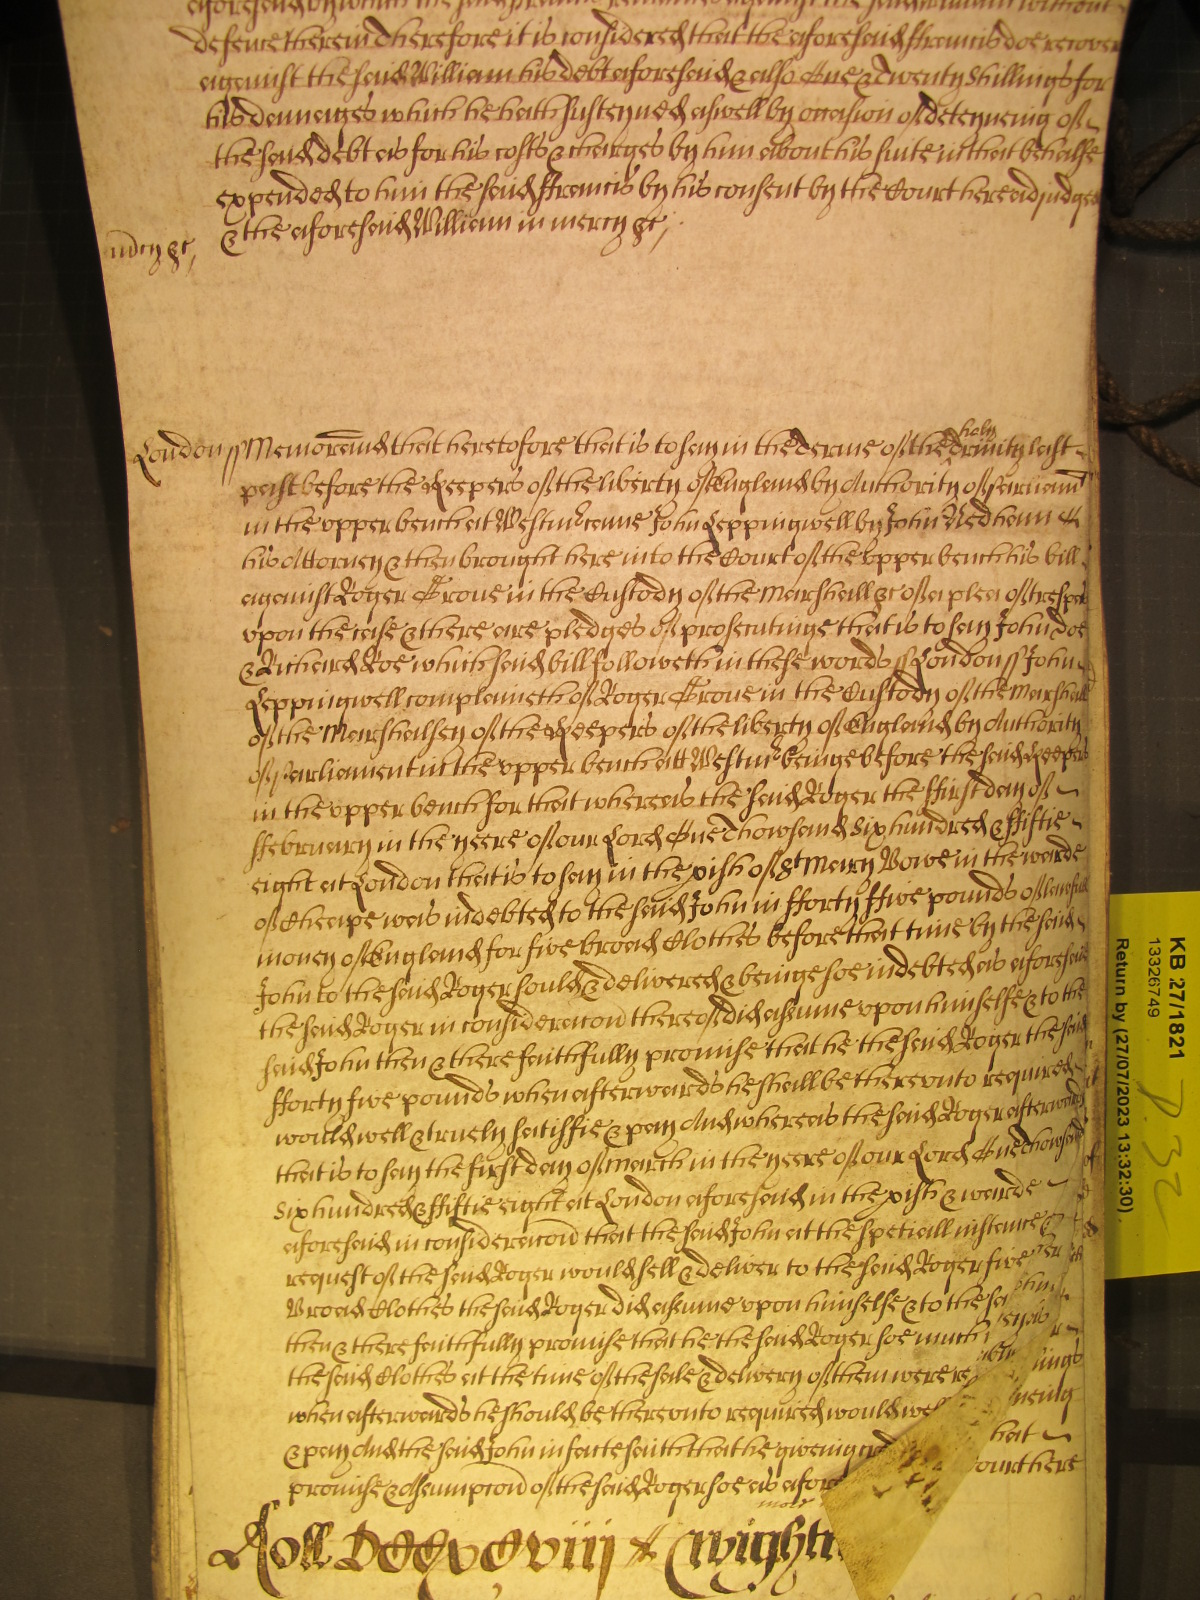 aforesaid by which the said Francis remaines against the said William without
defence therein Therefore it is considered that the aforesaid ffrancis doe recover
against the said William his debt aforesaid & also One & Twenty Shillings for
his damages which he hath susteyned aswell by occasion of deteyneing of
the said debt as for his costs & charges by him about his suite in that behalfe
expended to him the said ffrancis by his consent by the Court here adjudged
& the aforesaid William in mercy &c;
mercy &c,
London ss Memorand that heretofore that is to say in the Terme of the holy Trinity last
past before the Keepers of the liberty of England by Authority of Parliamt
in the upper bench att Westmr came John Leppingwell by John Nedham
his Attorney & then brought here into the Court of the upper bench his bill
against Roger Grove in the Custody of the Marshall &c of a plea of trespas
upon the case & there are pledges of prosecutinge that is to say John doe
& Richard Roe which said bill followeth in these words ss London ss John
Leppingwell complaineth of Roger Grove in the Custody of the Marshall
of the Marshalsey of the Keepers of the liberty of England by Authority
of Parliament in the upper bench att Westmr beinge before the said Keepers
in the upper bench for that whereas the said Roger the ffirst day of
ffebruary in the yeere of our Lord One Thowsand Six hundred & ffiftie
eight at London that is to say in the pish of St Mary Bowe in the warde
of Cheape was indebted to the said John in fforty ffive pounds of lawfull
money of England for five broad Clothes before that time by the said
John to the said Roger sould & delivered & beinge soe indebted as aforesaid
the said Roger in consideracon thereof did assume upon himselfe & to the
said John then & there faithfully promise that he the said Roger the said
fforty five pounds when afterwards he shall be thereunto required
would well & truely satisfie & pay And whereas the said Roger afterwards
that is to say the first day of March in the yeere of our Lord One Thowsand
Six hundred & ffiftie eight at London aforesaid in the pish & warde
aforesaid in consideracon that the said John at the spetiall instance &
request of the said Roger would sell & deliver to the said Roger five
Broad Clothes the said Roger did assume upon himselfe & to the
then & there faithfully promise that he the said Roger soe much
the said Clothes at the time of the sale & delivery of them were
when afterwards he should be thereunto required would well
& pay And the said John in facte saith that he giveing hat
promise & assumpcon of the said Roger soe as afore ourt here
Roll DCCxCviii
KB 27/1821
13326749
Return by (27/07/2023 13:32:30)
P. 32